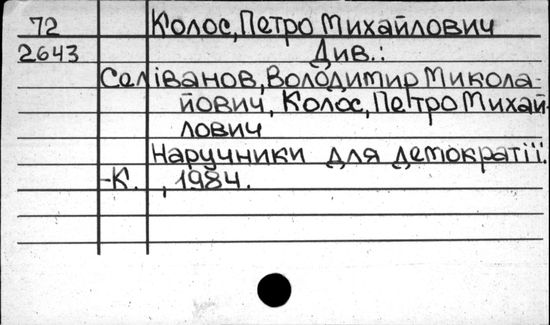 72 Колос, Петро Михайлович
2643 Див.:
Селіванов, Володимир Микола-
йович, Колос, Петро Михай-
лович
Наручники для демократії.
-К., 1984.